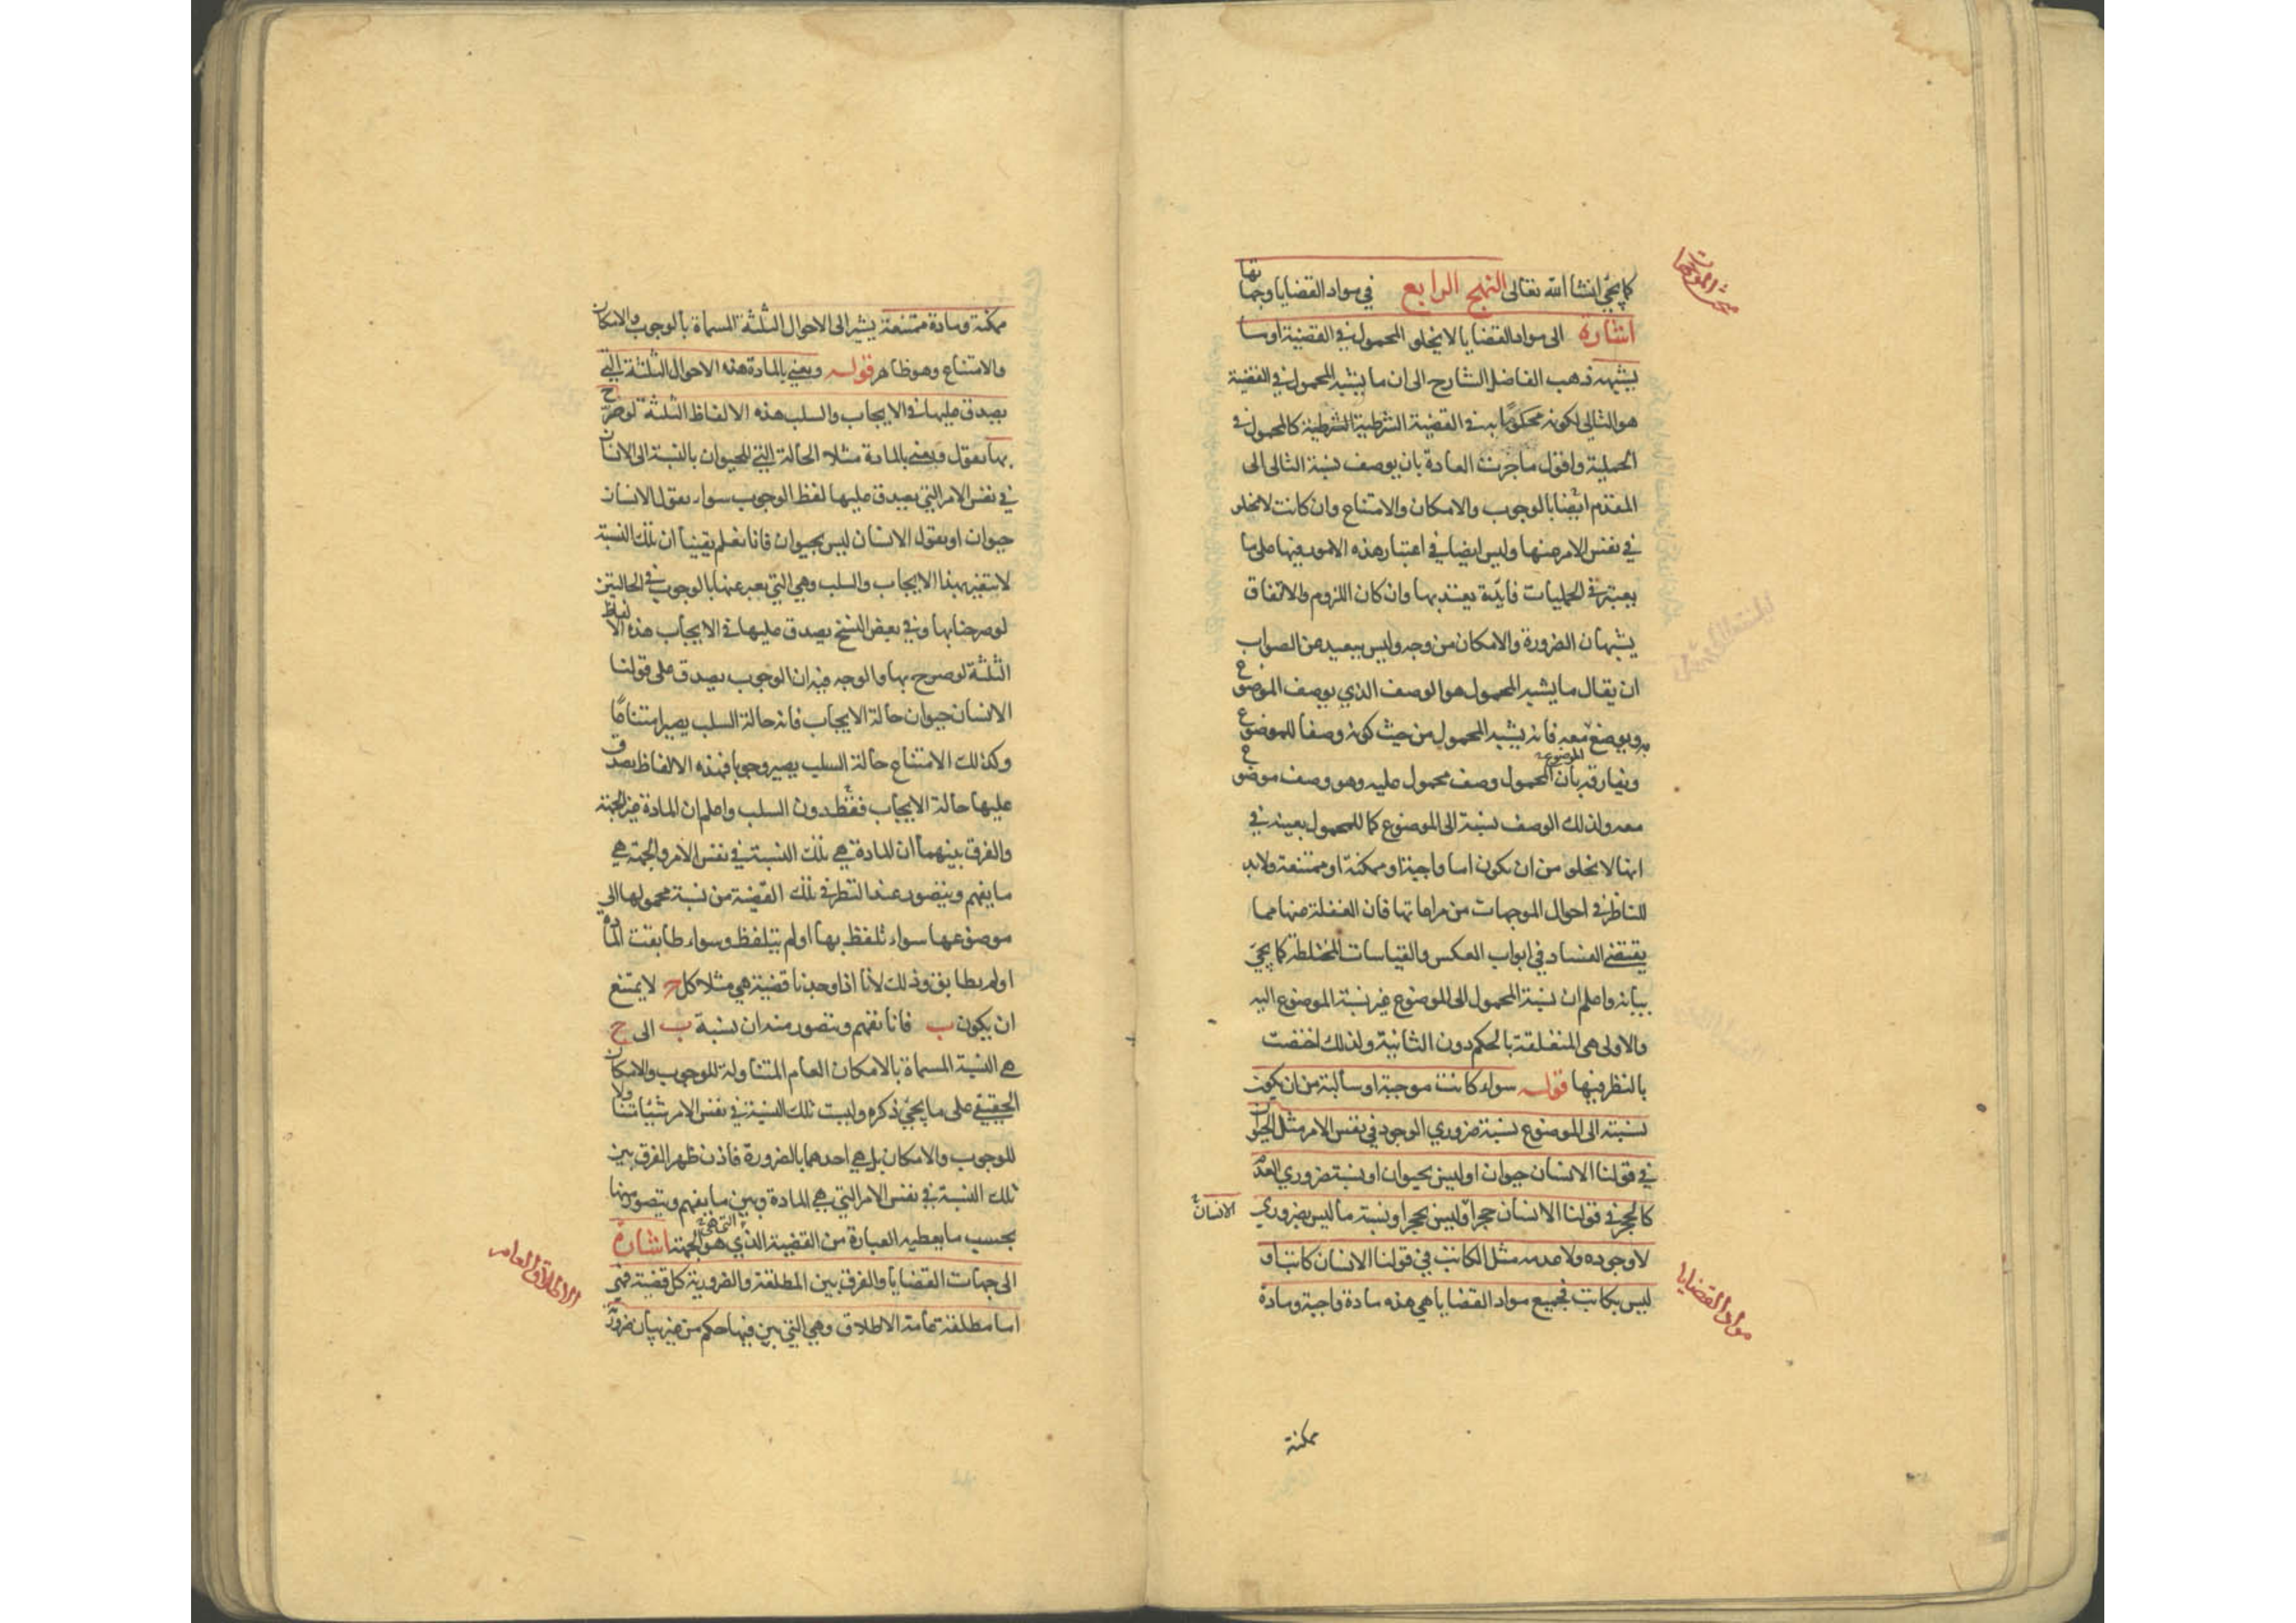 كما يجئ انشا الله تعالى النهج الرابع في مواد القضايا وجهاتها
اشارة الى مواد القضايا لا يخلو المحمول في القضية او ما
يشبهه ذهب الفاضل الشارح الى ان ما يشبه المحمول في القضية
هو التالى لكونه محكوما به في القضية الشرطية الشرطية كالمحمول في
الحملية واقول ما جرت العادة بان يوصف نسبة التالى الى
المقدم ايضا بالوجوب والامكان والامتناع وان كانت لا تخلو
في نفس الامر عنها وليس ايضا في اعتبار هذه الامور فيها على ما
يعتبر في الحمليات فايدة يعتد بها وان كان اللزوم والاتفاق
يشبهان الضرورة والامكان من وجه وليس ببعيد من الصواب
ان يقال ما يشبه المحمول هو الوصف الذي يوصف الموضوع
به ويوضع معه فانه يشبه المحمول من حيث كونه وصفا للموضوع
ويفارقه بان المحمول وصف محمول عليه وهو وصف موضوع
معه ولذلك الوصف نسبة الى الموضوع كما للمحمول بعينه في
انها لا تخلو من ان يكون اما واجبة او ممكنة او ممتنعة ولا بد
للناظر في احوال الموجهات من مراعاتها فان الغفلة عنها مما
يقتضى الفساد في ابواب العكس والقياسات المختلطة كما يجئ
بيانه واعلم ان نسبة المحمول الى الموضوع غير نسبة الموضوع اليه
والاولى هي المتعلقة بالحكم دون الثانية ولذلك اختصت
بالنظر فيها قوله سواء كانت موجبة او سالبة من ان يكون
نسبته الى الموضوع نسبة ضروري الوجود في نفس الامر مثل الحيوان
في قولنا الانسان حيوان او ليس بحيوان او نسبة ضروري العدم
كالحجر في قولنا الانسان حجر او ليس بحجر او نسبة ما ليس بضروري
الانسان
لا وجوده ولا عدمه مثل الكاتب في قولنا الانسان كاتب او
ليس بكاتب فجميع مواد القضايا هي هذه مادة واجبة ومادة
مواد القضايا
ممكنة
ممكنة ومادة ممتنعة يشير الى الاحوال الثلثة المسماة بالوجوب والامكان
والامتناع وهو ظاهر قوله ويعنى بالمادة هذه الاحوال الثلثة التي
يصدق عليها في الايجاب والسلب هذه الالفاظ الثلثة لو صرح
بها نقول ويعنى بالمادة مثلا الحالة التي للحيوان بالنسبة الى الانسان
في نفس الامر التي يصدق عليها لفظ الوجوب سواء نقول الانسان
حيوان او نقول الانسان ليس بحيوان فانا نعلم يقينا ان تلك النسبة
لا يتغير بهذا الايجاب والسلب وهي التي يعبر عنها بالوجوب في الحالتين
لو صرحنا بها وفي بعض النسخ يصدق عليها في الايجاب هذه الالفاظ
الثلثة لو صرح بها والوجه فيه ان الوجوب يصدق على قولنا
الانسان حيوان حالة الايجاب فانه حالة السلب يصير امتناعا
وكذلك الامتناع حالة السلب يصير وجوبا فهذه الالفاظ يصدق
عليها حالة الايجاب فقط دون السلب واعلم ان المادة غير الجهة
والفرق بينهما ان المادة هي تلك النسبة في نفس الامر والجهة هي
ما يفهم ويتصور عند النظر في تلك القضية من نسبة محمولها الى
موضوعها سواء تلفظ بها او لم يتلفظ وسواء طابقت المادة
او لم يطابق وذلك لانا اذا وجدنا قضية هي مثلا كل ج لا يمتنع
ان يكون ب فانا نفهم ونتصور منه ان نسبة ب الى ج
هي النسبة المسماة بالامكان العام المتناولة للوجوب والامكان
الحقيقي على ما يجئ ذكره وليست تلك النسبة في نفس الامر شيئا متناولا
للوجوب والامكان بل هي احدهما بالضرورة فاذن ظهر الفرق بين
تلك النسبة في نفس الامر التي هي المادة وبين ما يفهم ويتصور منها
بحسب ما يعطيه العبارة من القضية الذي هو الجهة اشارة
الى جهات القضايا والفرق بين المطلقة والضرورية كل قضية فهي
اما مطلقة عامة الاطلاق وهي التي بين فيها حكم من غير بيان ضرورة
الاطلاق العام